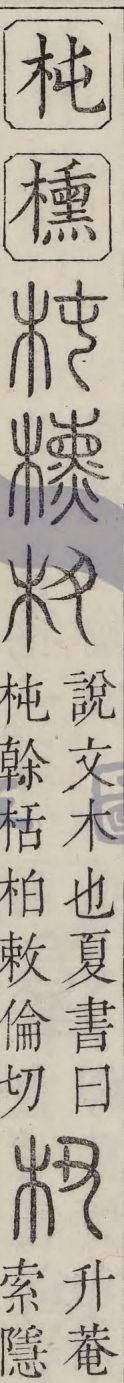 杶
櫄
杶
櫄
杻
說文木也夏書曰
杶榦栝柏敕倫切
杻
升菴
索隱